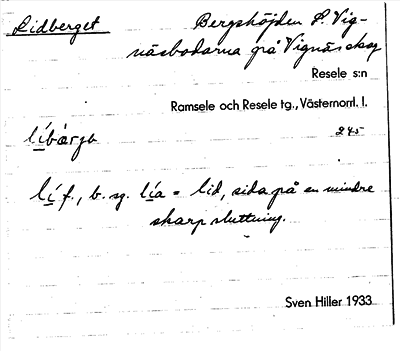 Lidberget
Bergshöjden S. Vig-
näsbodarna på Vignäs skog
Resele s:n
Ramsele och Resele tg., Västernorrl. l.
245
líbärjə
lí f., b. sg. lía = lid, sida på en mindre
skarp sluttning.
Sven Hiller 1933